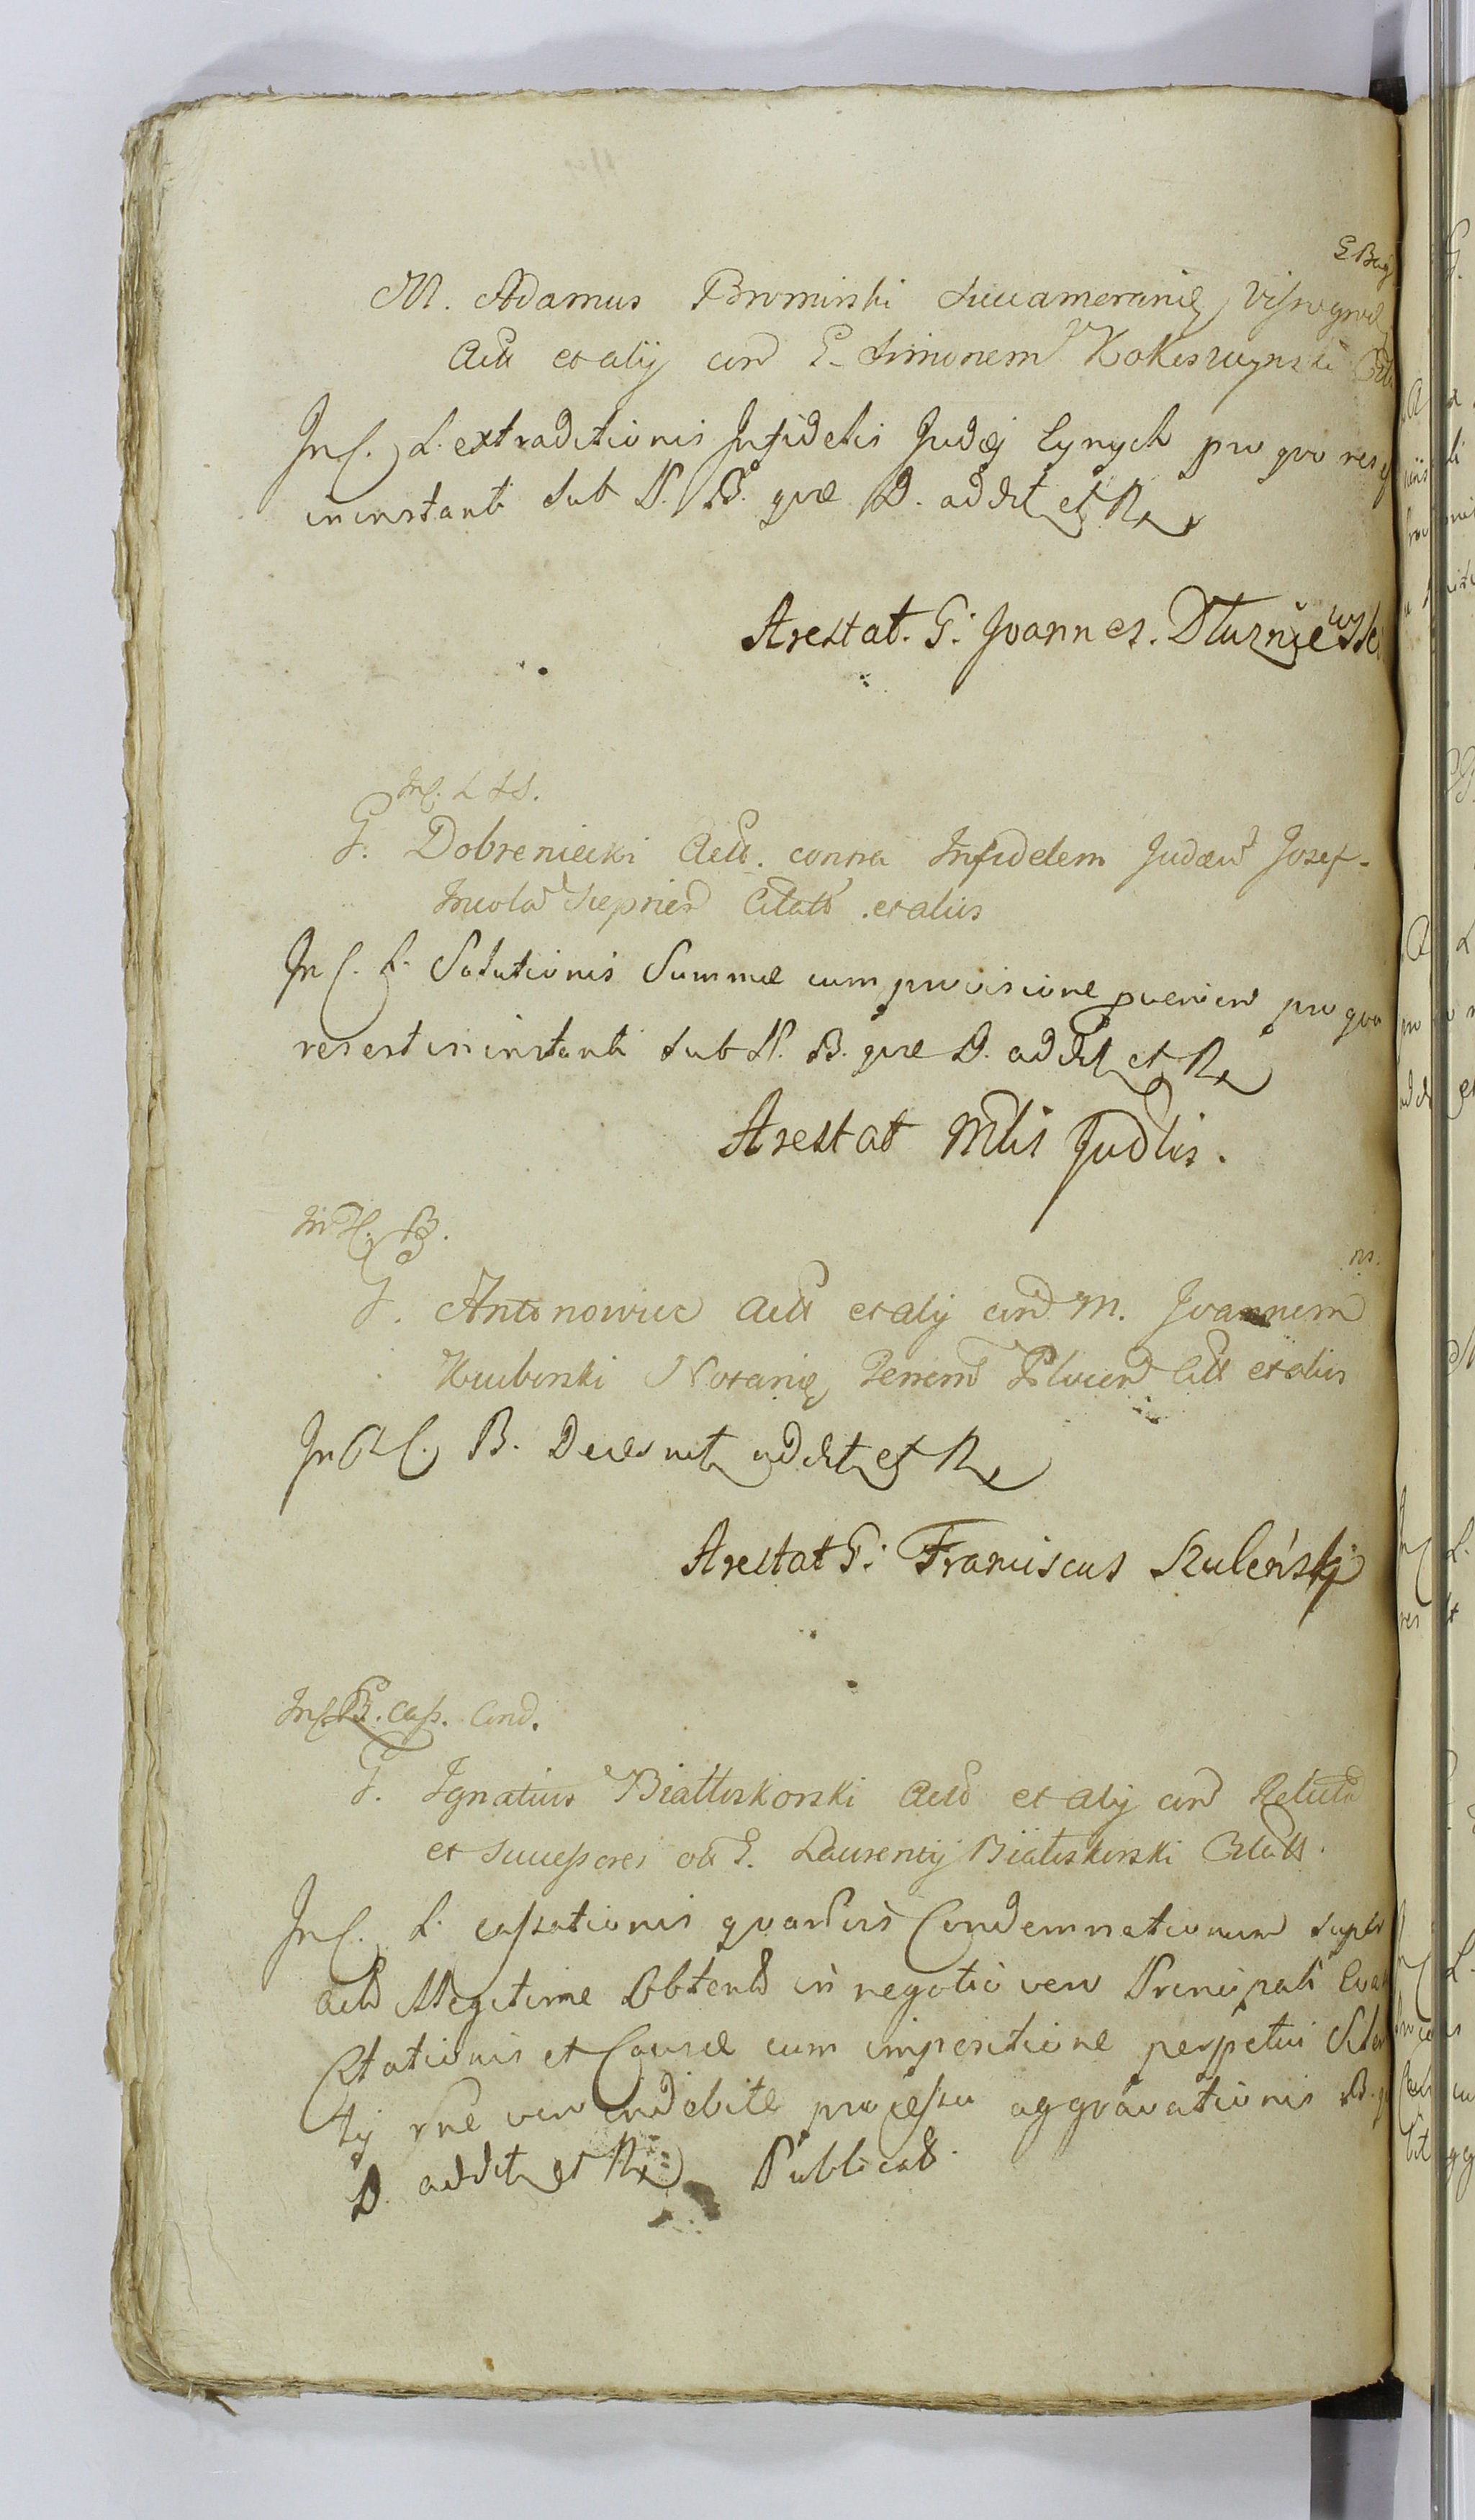 M. Adamus Bromirski Succamerarius Vissogrod
Actt et alij con G. Simonem Kokoszczynski
In C. L. extraditionis Infidelis Judæj Cynych pro quo res e
in instanti sub P. B. quæ D. addit et R
Arestat. G: Joannes. Dłuzniewsk
In C. L S S.
G. Dobreniecki Actt. contra Infidelem Judæu Josef
Incola Sieprien Citatt. et aliis
In C. L. Solutionis Summæ cum provisione proveniend pro quo
res est in instanti sub P. B. quæ D. addit et R
Arestat Mtis Judlis.
In C. B.
G. Antonowicz Actt et alij con M. Joannem
Notariu Terrem Plocen Citt et aliis
In C. B. Decernit addit et R
Arestat G: Franciscus Szuleński
In C. B. Cass. Cond.
G. Ignatius Białłoskorski Actt et alij con Relicta
et Successores ol G. Laurentij Białoskorski Citatt.
In C. L. cassationis quarvis Condemnationum super
actt Illegitime Obtent in negotio vero Principali Eva
Citationis et Causæ cum impositione perpetui Silen
tij rne vero indebite processu aggravationis B.
D. addit et R Publicatt.